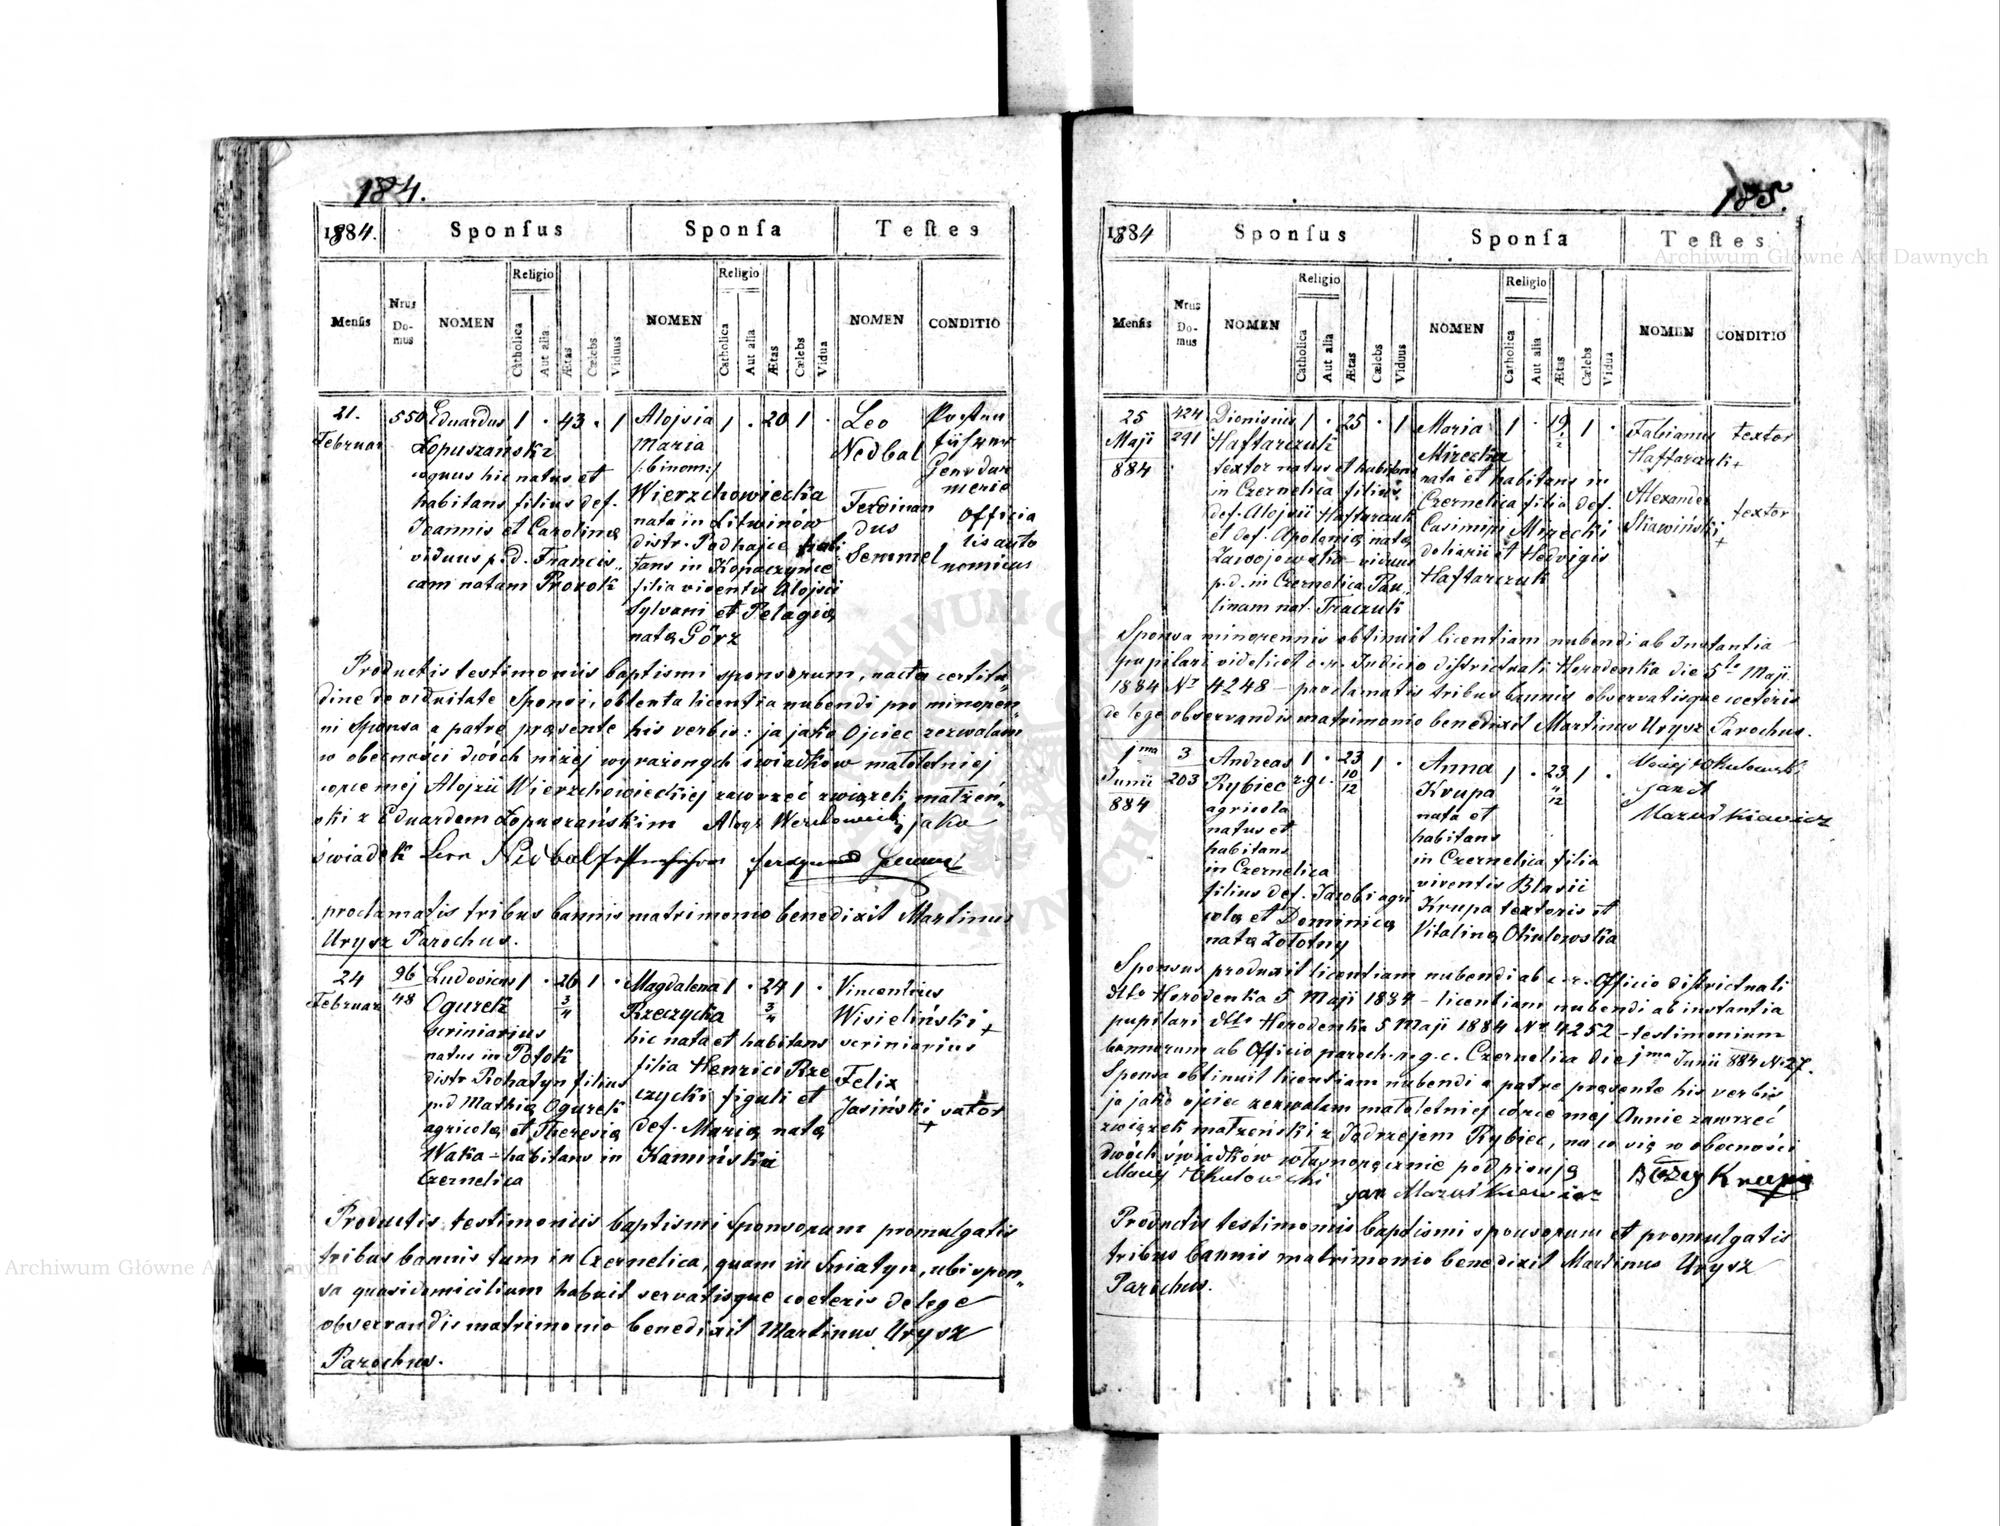 184.
1884.
Sponſus
Sponſa
Teſtes
Menſis
Nrus
Do-
mus
NOMEN
Religio
Catholica
Aut alia
Ætas
Cælebs
Viduus
NOMEN
Religio
Catholica
Aut alia
Ætas
Cælebs
Vidua
NOMEN
CONDITIO
21.
Februar
550
Eduardus
Łopuszański
coquus hic natus et
habitans filius def.
Joannis et Carolina
viduus p.d. Francis
cam natam Prorok
1 . 43 . 1
Alojsia
Maria
/:binom:/
Wierzchowiecka
nata in Litwinów
distr. Podhajce habi
tans in Kopaczynce
filia viventis Alojsii
Sylvani et Pelagia
nata Görz
1 . 20 1 .
Leo
Nedbal
Ferdinan
dus
Semmel
Posten
führer
Gensdar
merie
Officia
lis auto
nomicus
Productis testimoniis baptismi sponsorum, nacta certitu
dine de viduitate Sponsi, obtenta licentia nubendi pro minoren
ni Sponsa a patre præsente his verbis: ja jako Ojciec zezwalam
w obecności dwóch niżej wyrażonych świadków małoletniej
córce mej Alojzii Wierzchowieckiej zawrzeć związek małżeń
ski z Eduardem Łopuszańskim jako
świadek Leon Nedbal
proclamatis tribus bannis matrimonio benedixit Martinus
Urysz Parochus.
24
Februar
96
48
Ludovicus
Ogurek
scriniarius
natus in Potok
distr Rohatyn filius
p.d Mathia Ogurek
agricola et Theresia
Waka - habitans in
Czernelica
1 . 26 1 .
3
4
Magdalena
Rzeczycka
hic nata et habitans
filia Henrici Rze
czycki figuli et
def. Maria nata
Kamińska
1 . 24 1 .
3
4
Vincentius
Wisieliński +
scriniarius
Felix
Jasiński sator
+
Productis testimoniis baptismi Sponsorum promulgatis
tribus bannis tum in Czernelica, quam in Sniatyn, ubi spon
sa quasidomicilium habuit servatisque coeteris de lege
observandis matrimonio benedixit Martinus Urysz
Parochus.
185.
1884
Sponſus
Sponſa
Teſtes
Menſis
Nrus
Do-
mus
NOMEN
Religio
Catholica
Aut alia
Ætas
Cælebs
Viduus
NOMEN
Religio
Catholica
Aut alia
Ætas
Cælebs
Vidua
NOMEN
CONDITIO
25
Maji
884
424
291
Dionisius
Haftarczuk
textor natus et habitans
in Czernelica filius
def. Alojsii Haftarczuk
et def. Apolonia nata
Zawojowska - viduus
p.d. in Czernelica Pau
linam nat. Traczuk
1 . 25 . 1
Maria
Mirecka
nata et habitans in
Czernelica filia def.
Casimiri Mirecki
doliarii et Hedvigis
Haftarczuk
1 . 19 1 .
Fabianus
Haftarczuk +
textor
Alexander
Śliawiński
+
textor
Sponsa minorennis obtinuit licentiam nubendi ab Instantia
pupilari videlicet c.r. Judicio districtuali Horodenka die 5ta Maji
1884 Nr 4248 - proclamatis tribus bannis observatisque coeteris
de lege observandis matrimonio benedixit Martinus Urysz Parochus.
1ma
Junii
884
3
203
Andreas
Rybiec r.g.c.
agricola
natus et
habitans
in Czernelica
filius def. Jacobi agri
cola et Dominica
nata Zołotny
1 . 23 1 .
10
12
Anna
Krupa
nata et
habitans
in Czernelica filia
viventis Blasii
Krupa textoris et
Vitalina Okulowska
1 . 23 1 .
12
Maciej Okulowski
Jan
Mazurkiewicz
Sponsus produxit licentiam nubendi ab c.r. Officio districtuali
dtto Horodenka 5 Maji 1884 - licentiam nubendi ab instantia
pupilari dtto Horodenka 5 Maji 1884 Nr 4252 - testimonium
bannorum ab Officio paroch. r.g.c. Czernelica die 1ma Junii 884 N 27.
Sponsa obtinuit licentiam nubendi a patre præsente his verbis
ja jako ojciec zezwalam małoletniej córce mej Annie zawrzeć
związek małżeński z Jędrzejem Rybiec, na co się w obecności
dwóch świadków własnoręcznie podpisuję Błażej Krupa
Maciej Okulowski
Jan Mazurkiewicz
Productis testimoniis baptismi sponsorum et promulgatis
tribus bannis matrimonio benedixit Martinus Urysz
Parochus.
Archiwum Główne Akt Dawnych
Archiwum Główne Akt Dawnych